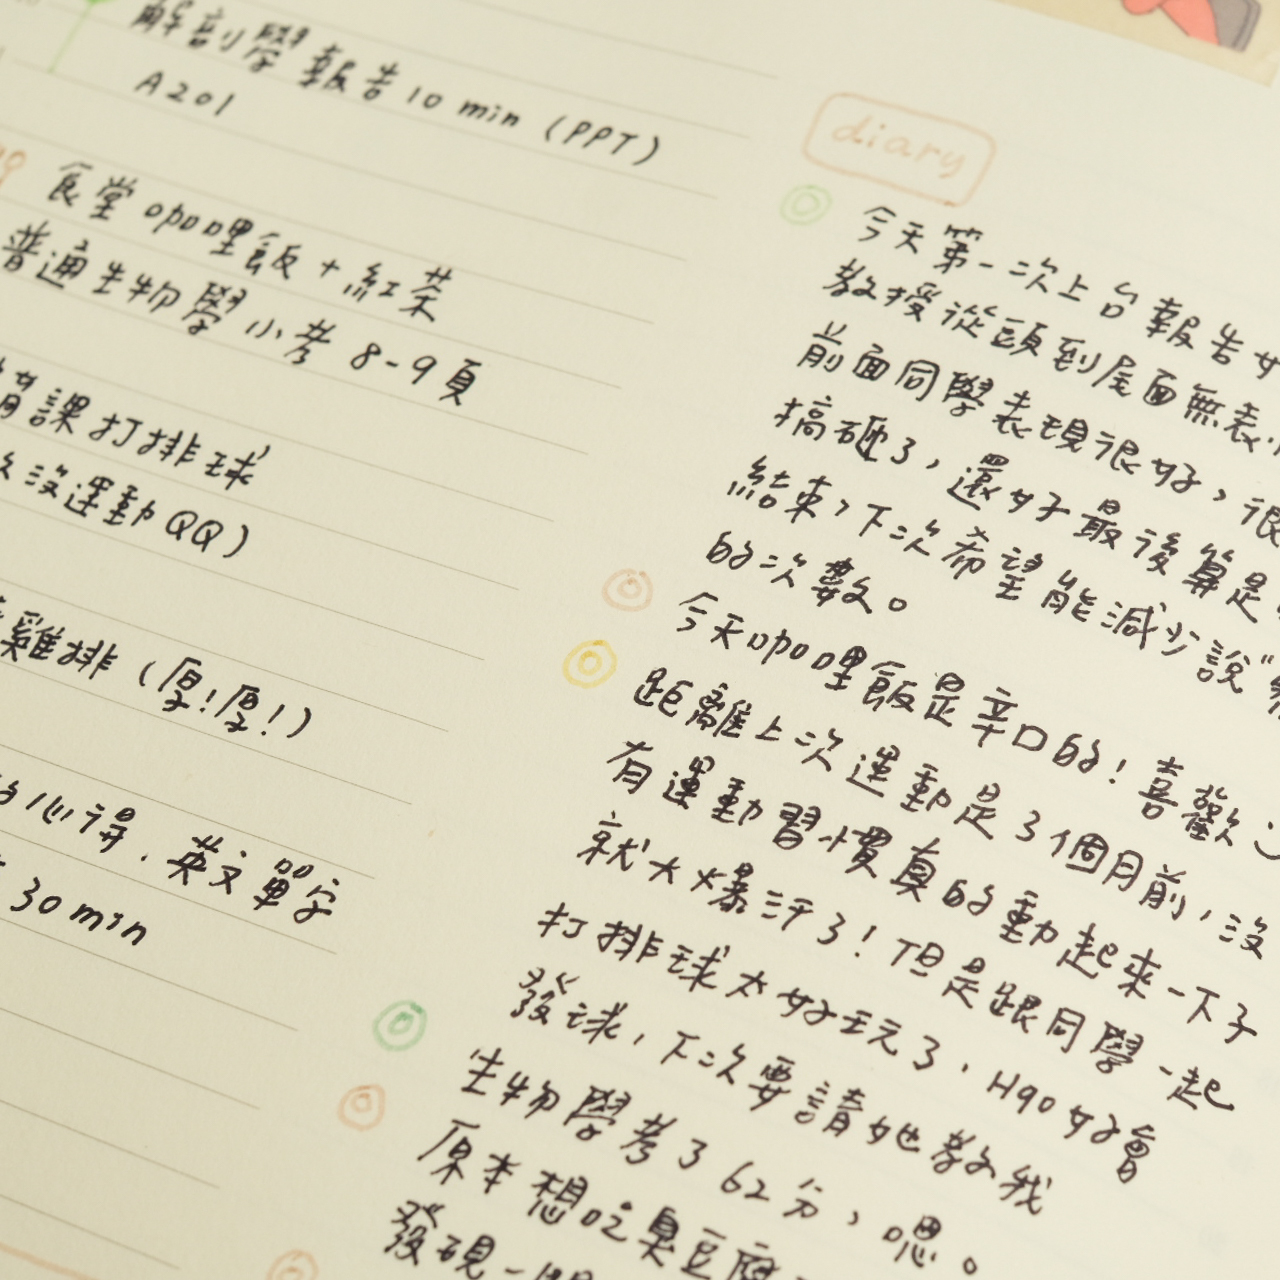 解剖學報告10 min (PPT)
A201
食堂咖哩飯+紅茶
普通生物學小考 8-9頁
課打排球
沒運動QQ)
雞排(厚!厚!)
心得.英文單字
30 min
diary
今天第一次上台報告好
教授從頭到尾面無表
前面同學表現很好,很
搞砸了,還好最後算是
結束,下次希望能減少說"
的次數。
今天咖哩飯是辛口的!喜歡
距離上次運動是3個月前,沒
有運動習慣真的動起來一下子
就大爆汗了!但是跟同學一起
打排球太好玩了.Hao好會
發球,下次要請她教我
生物學考了62分,嗯。
原本想吃臭豆腐
發現一間